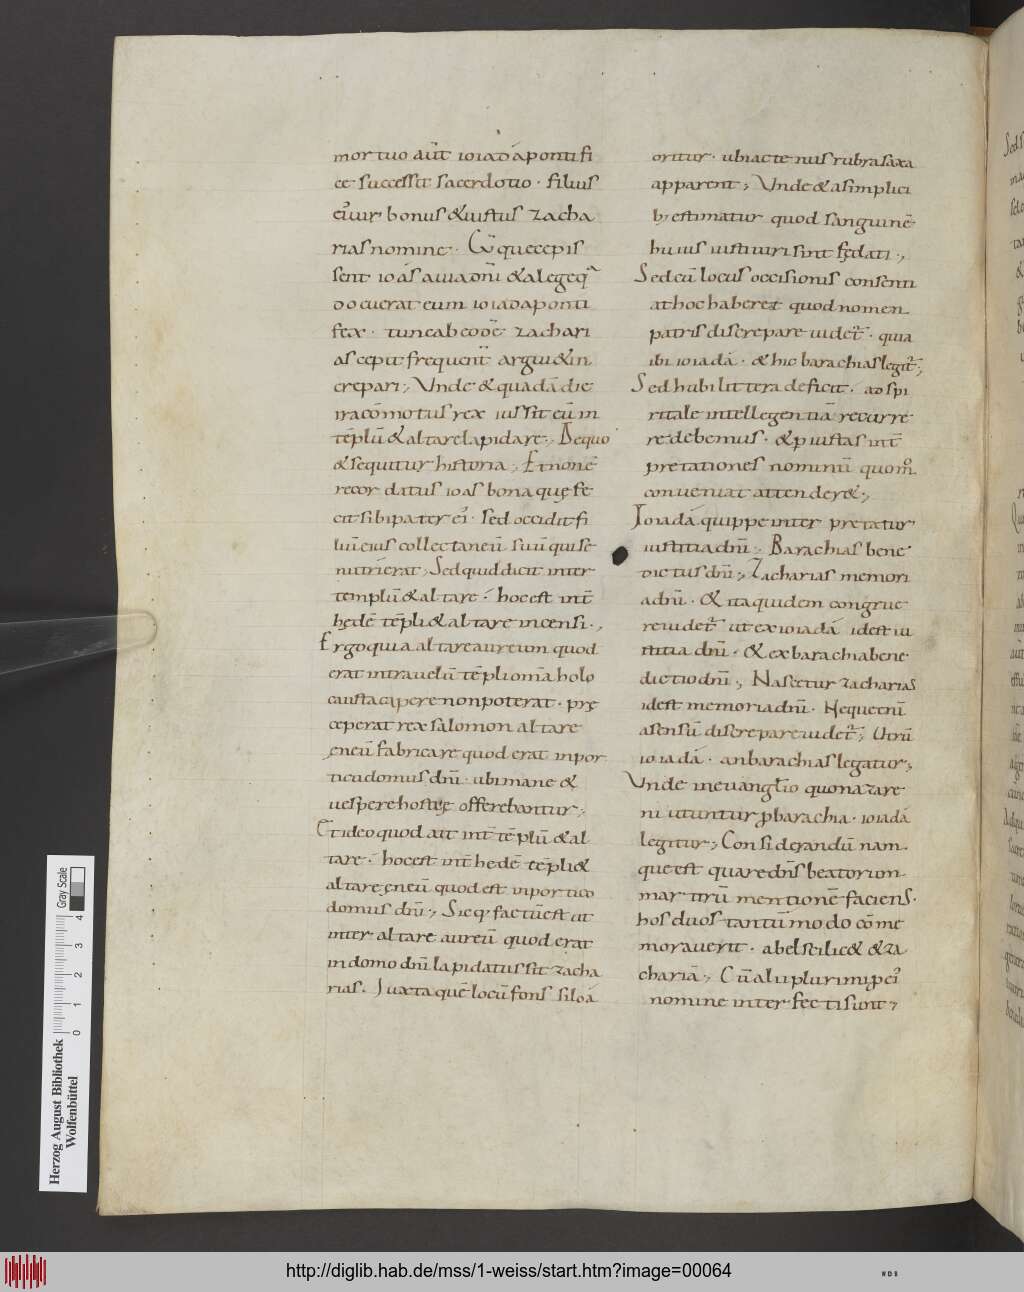 mortuo aūt ioiadá pontifi
ce successit sacerdotio · filius
ei' uir bonus & iustus zacha
rias nomine · Cū que cepis
sent ioás a uia dn̄i & a lege q̄
docuerat eum ioiada ponti
fex · tunc ab eodē zachari
as cepit frequent̄ argui & in
crepari ; Unde & quadā die
ira cōmotus rex iussit eū in
tēplū & altare lapidare ; De quo
& sequitur historia ; Et non ē
recordatus ioas bona quę fe
cit sibi pater ei' · sed occidit fi
liū eius collectaneū suū qui se
nutrierat ; Sed quid dicit inter
templū & altare · hoc est int̄
hędē tēpli & altare incensi · ,
Ergo quia altare aureum quod
erat intra uelū tēpli omīa holo
causta capere non poterat · prę
ceperat rex salomon altare
ęneū fabricare quod erat in por
ticu domus dn̄i · ubi mane &
uespere hostię offerebantur ;
Et ideo quod ait int̄ tēplū & al
tare · hoc est int̄ hędē tēpli &
altare ęneū quod est in portico
domus dn̄i ; Sicq; factū est ut
inter altare aureū quod erat
in domo dn̄i lapidatus sit zacha
rias · Juxta quē locū fons siloá
oritur · ubi actenus rubra saxa
apparent ; Unde & a simplici
b; estimatur quod sanguinē
huius iusti uiri sint fędati · ,
Sed cū locus occisionis consenti
at hoc haberet quod nomen
patris discrepare uidet̄ · quia
ibi ioiadá · & hic barachias legit̄ ;
Sed h ubi littera deficit · ad spi
ritale intellegentiā recurre
re debemus · & p iustas int̄
pretationes nominū quom̊
conueniat attender& · ,
Joiadá quippe interpretatur
iustitia dn̄i ; Barachias bene
dictus dn̄i ; Zacharias memori
a dn̄i · & ita quidem congrue
re uidet̄ ut ex ioiadá id est iu
stitia dn̄i · & ex barachia bene
dictio dn̄i ; Nascetur zacharias
id est memoria dn̄i · Neque enī
a sensū discrepare uidet̄ ; Utrū
ioiadá · an barachias legatur ;
Unde in euangl̄io quo nazare
ni utuntur p barachia · ioiadá
legitur ; Considerandū nam
que est quare dn̄s beatorum
martirū mentionē faciens ·
hos duos tantūmodo cōme
morauerit · abel scilic& & za
chariā ; Cū alii plurimi p ei'
nomine interfecti sunt ;
Herzog August Bibliothek
Wolfenbüttel
Gray Scale
0 1 2 3 4
http://diglib.hab.de/mss/1-weiss/start.htm?image=00064